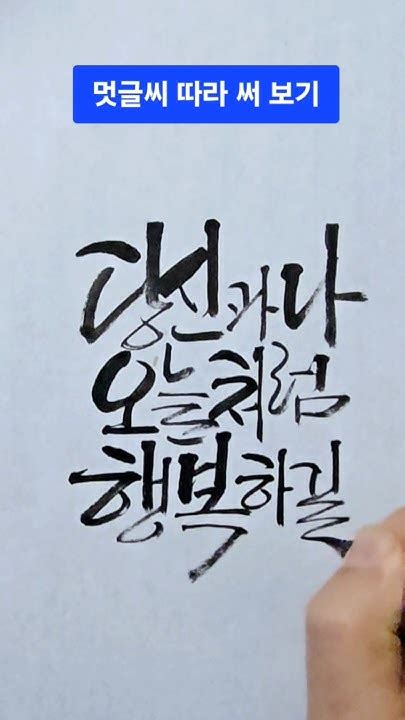 멋글씨 따라 써 보기
당신과 나
오늘처럼
행복하길